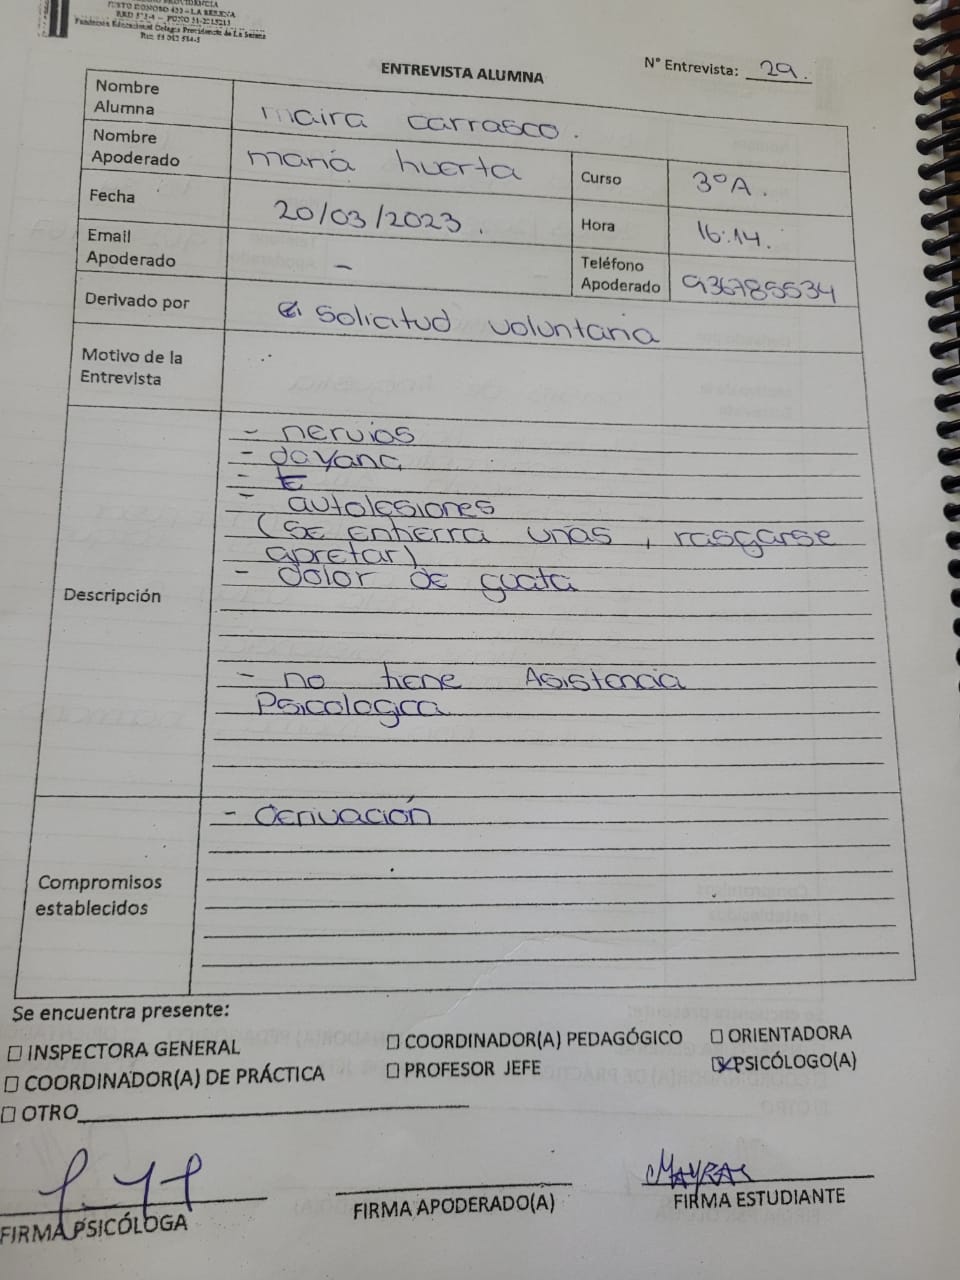 JUSTO DONOSO 420 - LA SERENA
Fundación Educacional Colegio Providencia de La Serena
ENTREVISTA ALUMNA
N° Entrevista: 29.
Nombre Alumna
maira carrasco.
Nombre Apoderado
maria huerta
Curso
3°A.
Fecha
20/03/2023.
Hora
16:14.
Email Apoderado
-
Teléfono Apoderado
936785534
Derivado por
solicitud voluntaria
Motivo de la Entrevista
Descripción
- nervios
- dayana
- t
- autolesiones
(se entierra uñas, rasgarse
apretar)
- dolor de guata
- no tiene Asistencia
Psicologica
Compromisos establecidos
- derivación
Se encuentra presente:
INSPECTORA GENERAL
COORDINADOR(A) PEDAGÓGICO
ORIENTADORA
COORDINADOR(A) DE PRÁCTICA
PROFESOR JEFE
PSICÓLOGO(A)
OTRO
MAYRA
FIRMA PSICÓLOGA
FIRMA APODERADO(A)
FIRMA ESTUDIANTE